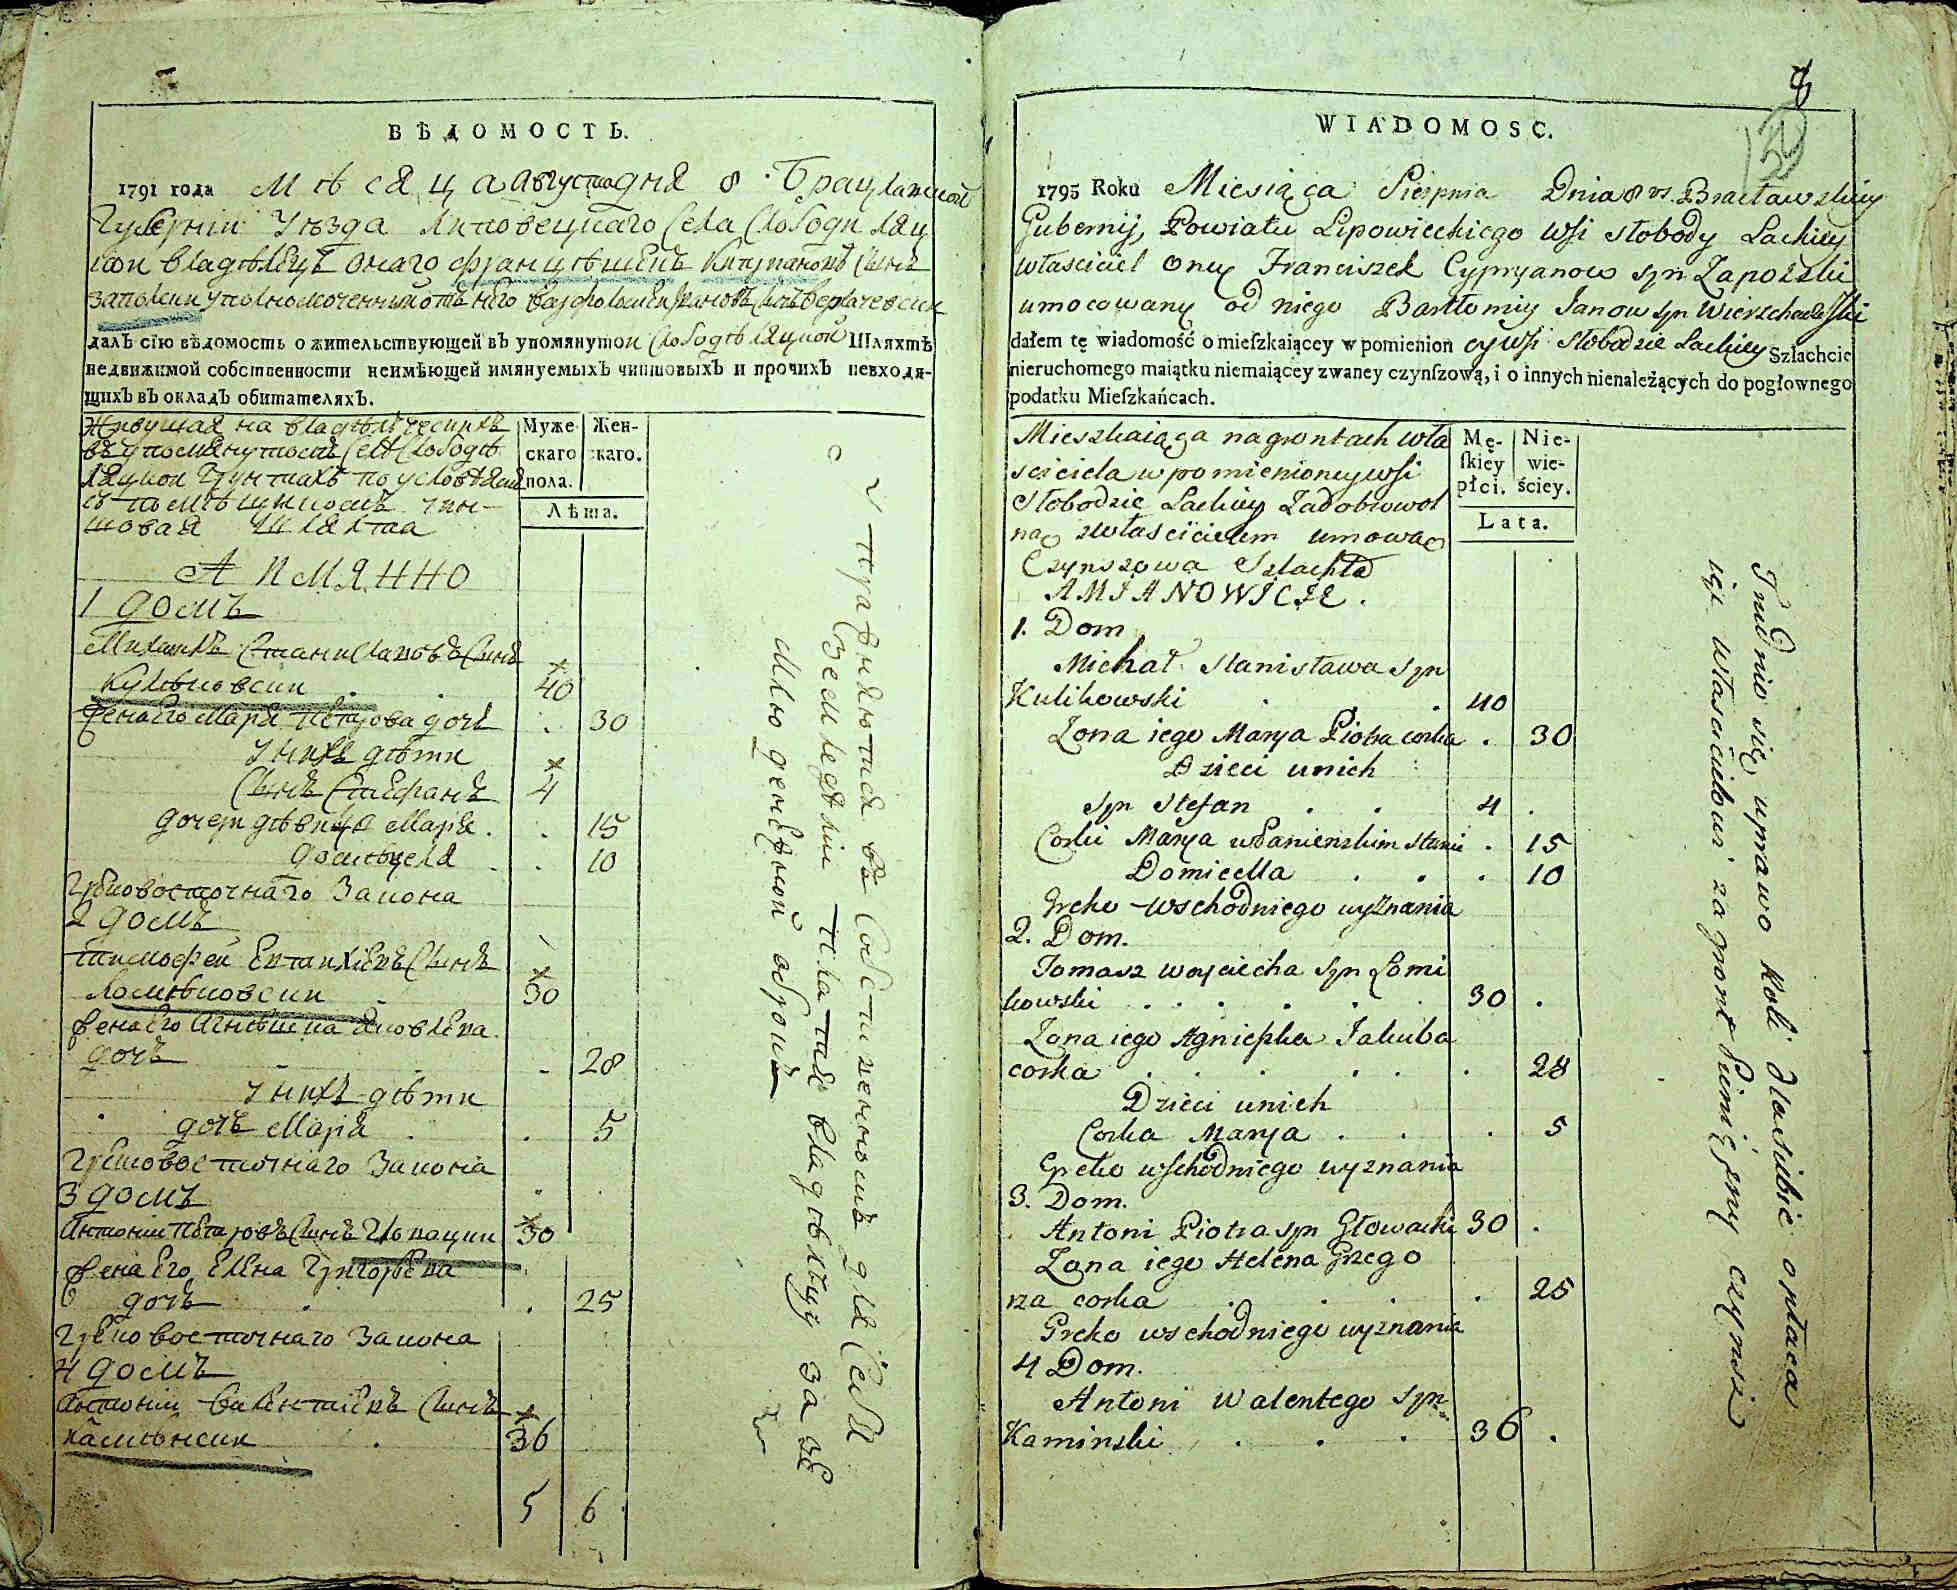 ВѢДОМОСТЬ.
1791 года Мѣсяца августа дня 8 Брацлавской
Губернїи Уѣзда Липовецкаго Села Слободи Ляц
кои владѣлецъ онаго Францѣшекъ Киприановъ Синъ
Заполскии уполномоченний отъ него
далъ сїю вѣдомость о жительствующей въ упомянутой Слободѣ Ляцкой Шляхтѣ
недвижимой собственности неимѣющей имянуемыхъ чиншовыхъ и прочихъ невходя-
щихъ въ окладъ обитателяхъ.
Живущая на владѣлческихъ
въ упомянутомъ Селѣ Слободѣ
Ляцкой Грунтахъ по условѣям
съ помѣщикомъ чин-
шовая Шляхта
Муже-
скаго
пола.
Жен-
скаго.
Лѣта.
А ИМЯННО
1 домъ
Михаилъ Станиславовъ Синъ
Куликовскии 40
Жена его Мария Петрова дочъ . 30
У нихъ дѣти
Синъ Стефанъ 4
дочери дѣвици Мария . . 15
Домицеля . . 10
Грековосточнаго Закона
2 домъ
Тимофей Синъ
Ломѣковскии 30
Жена его Агнѣшка Яковлева
дочъ . 28
У нихъ дѣти
дочъ Мария . . 5
Грековосточнаго Закона
3 домъ
Антонии Петровъ Синъ Гловацки 30
Жена его Елена Григорьева
дочъ . . 25
Грековосточнаго Закона
4 домъ
Антонии Валентиевъ Синъ
Камѣнски . 36
5 6
Упражняются въ Собственномъ для Себя
Земледелии платя владѣлцу за зе
млю денежной оброкъ
WIADOMOSC.
1795 Roku Miesiąca Sierpnia Dnia 8 vs. Bracławskiey
Gubernij, Powiatu Lipowieckiego Wsi słobody Lackiey
właściciel oney Franciszek Cypryanow syn Zapolski
umocowany od niego Bartłomiey Janow syn
dałem tę wiadomość o mieſzkaiącey w pomienioncy wsi Słobodzie Lackiey Szlachcie
nieruchomego maiątku niemaiącey zwaney czynſzową, i o innych nienależących do pogłownego
podatku Mieſzkańcach.
Mieszkaiąca na gruntach wła
sciciela w pomienioney wsi
Słobodzie Lackiey Zadobrowol
ną zwłascicielem umową
Czynszowa Szlachta
Mę-
ſkiey
płci.
Nie-
wie-
ściey.
Lata.
AMIANOWICIE.
1. Dom
Michał Stanisława Syn
Kulikowski . . 40
Zona iego Marya Piotra corka . 30
Dzieci unich
Syn Stefan . . 4 .
Corki Marya wPanienskim stanie . 15
Domicella . . . 10
Greko-wschodniego wyznania
2. Dom.
Tomasz woyciecha Syn Łomi
kowski . . . . . . 30 .
Zona iego Agnieſzka Jakuba
corka . . . . . . . 28
Dzieci unich
Corka Marya . . . 5
Greko wſchodniego wyznania
3. Dom.
Antoni Piotra syn Głowacki 30 .
Zona iego Helena Grzego
rza corka . . . . . 25
Greko wschodniego wyznania
4 Dom.
Antoni Walentego Syn
Kaminski . . . 36 .
Trudnio się uprawo Roli Na siebie opłaca
iąc własćicielowi za gront Pinięzny czynsz